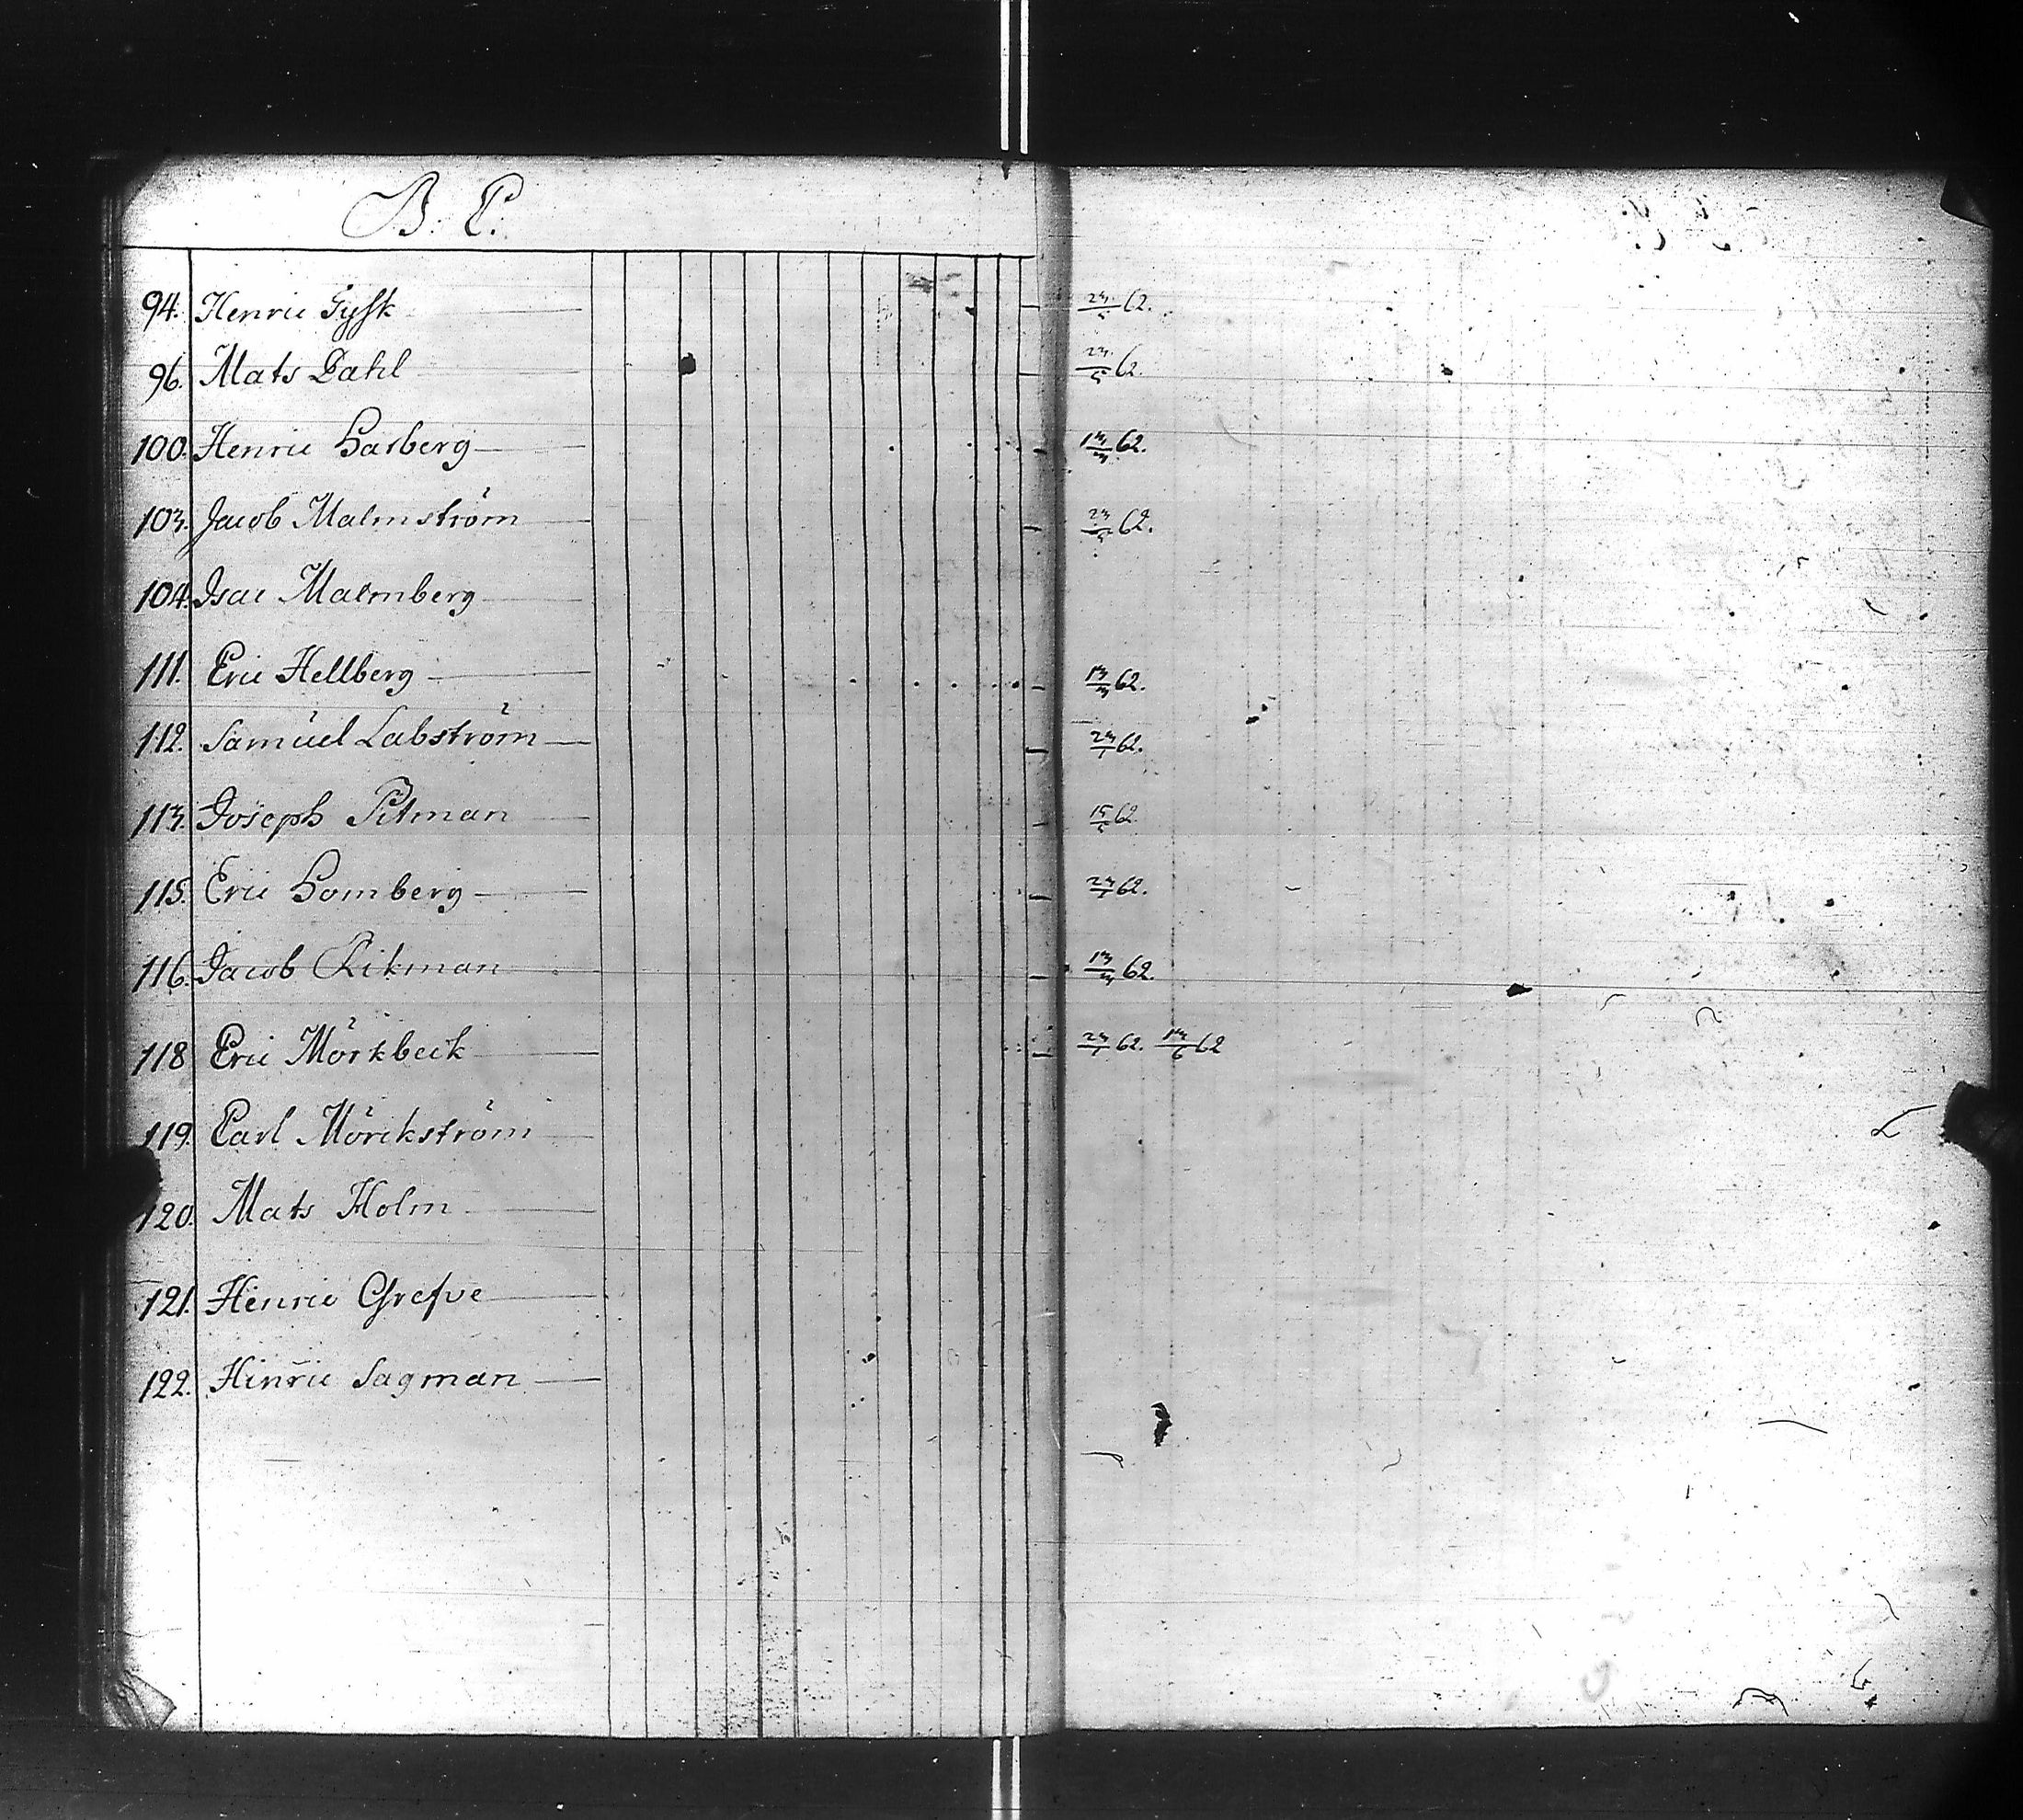 B. C.
94. Henric Tysk 23/5 62.
96. Mats Dahl 23/5 62.
100. Henric Hasberg 13/3 62.
103. Jacob Malmström 23/5 62.
104. Isac Malmberg
111. Eric Hellberg 13/3 62.
112. Samuel Labström 23/1 62.
113. Joseph Pitman 15/5 62
115. Eric Homberg 23/1 62.
116. Jacob Rikman 13/3 62.
118 Eric Mörkbeck 23/1 62. 13/6 62
119. Carl Mörckström
120. Mats Holm
121. Henric Grefve
122. Hinric Sagman